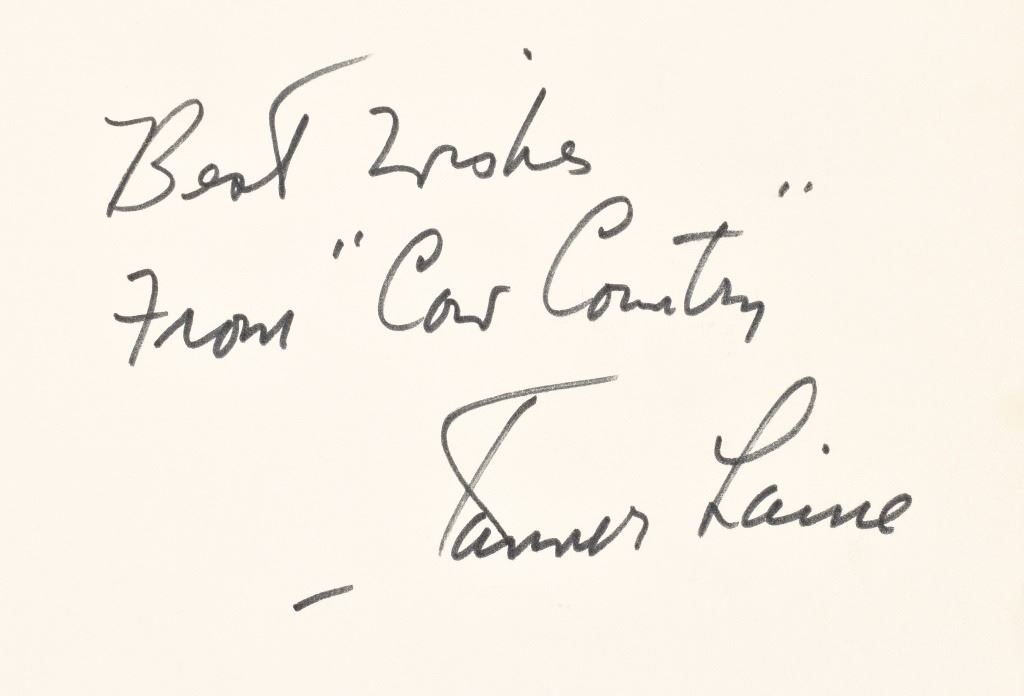 Best Wishes
From "Cow Country"
Tanner Laine
—